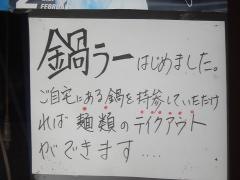 2
FEBRU
鍋ラーはじめました。
ご自宅にある鍋を持参していただけ
れば麺類のテイクアウト
ができます....